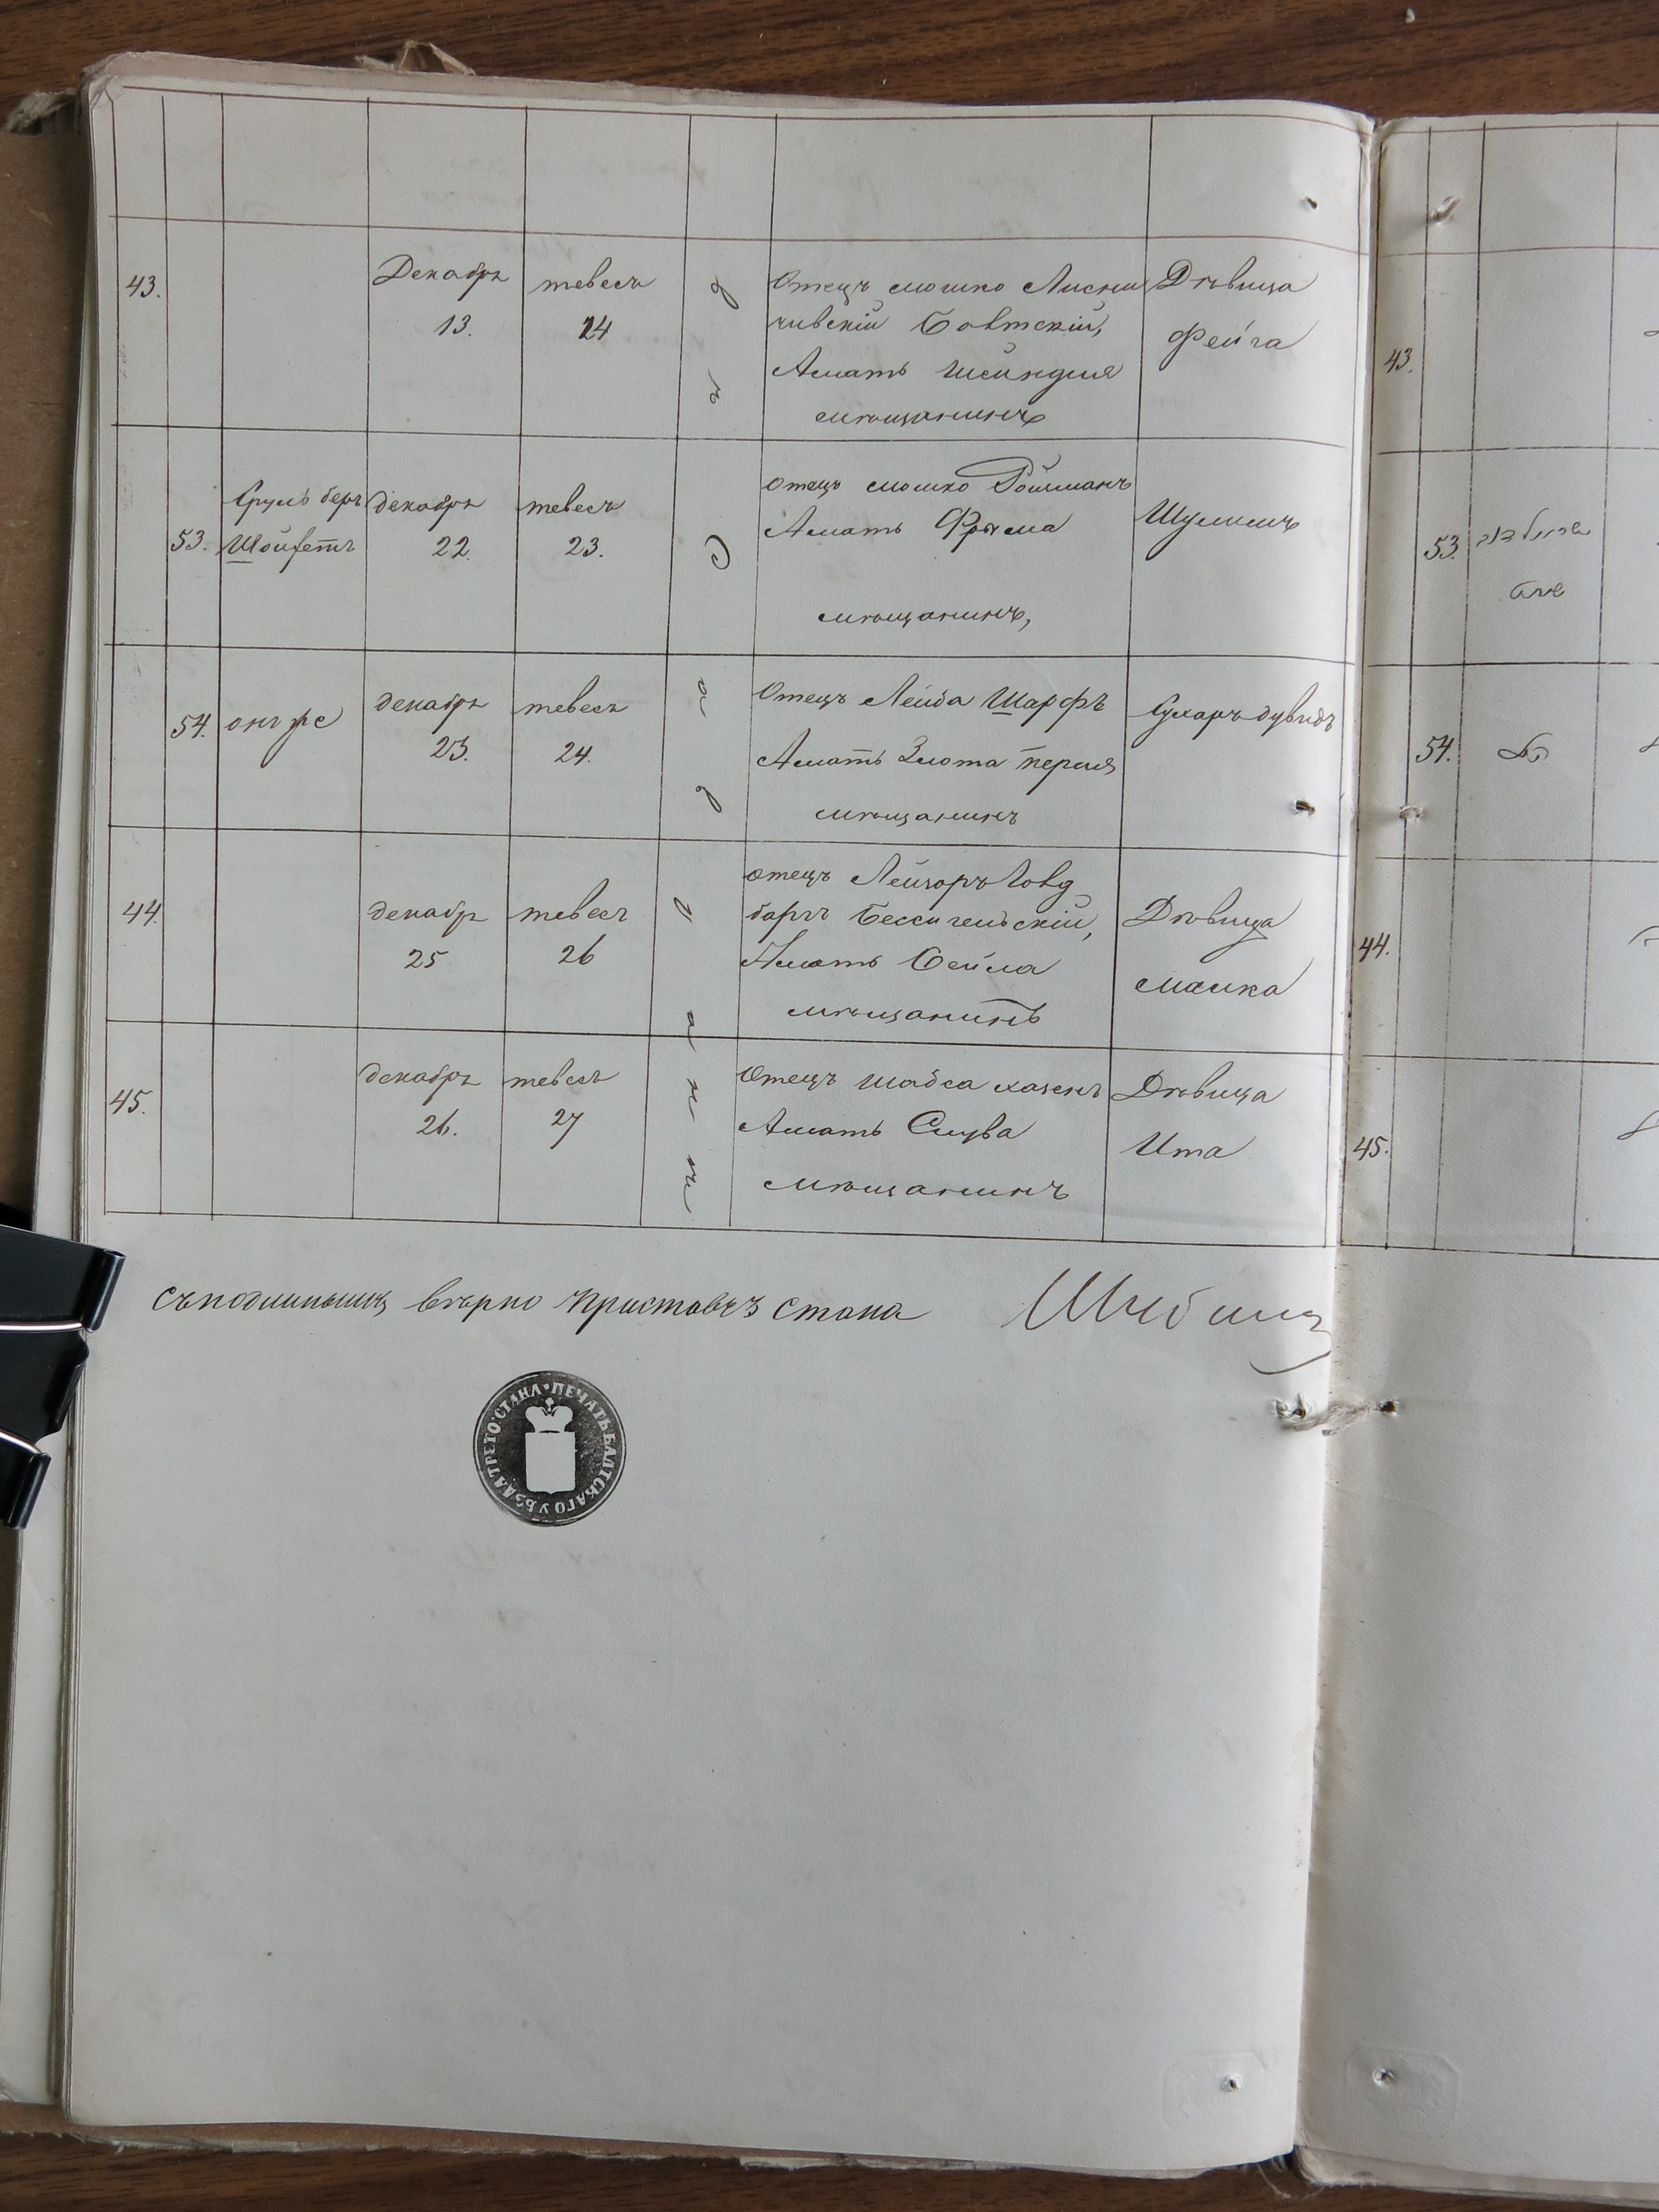 43.
Декабря
13.
тевеса
24
въ
Отецъ Мошко
Аматъ Шейндля
мѣщанинъ
Дѣвица
Фейга
43.
53.
Сруль беръ
Шойхетъ
декабря
22.
тевеса
23.
Отецъ Мошко Ройтманъ
Аматъ Фрыма
мѣщанинъ,
Шулимъ
53.
54.
онъ же
декабря
23.
тевеса
24.
Отецъ Лейба Шарфъ
Аматъ Злота перля
мѣщанинъ
Сухаръ дувидъ
54.
Савранѣ
44.
декабр
25
тевеса
26
отецъ Лейзоръ Голд
Аматъ Бейла
мѣщанинъ
Дѣвица
Малка
44.
45.
декабря
26.
тевеса
27
Отецъ Шабса хазенъ
Аматъ Слува
мѣщанинъ
Дѣвица
Ита
45.
Съ подлиннымъ вѣрно Приставъ Стана
ПЕЧАТЬ БАЛТСКАГО УѢЗДА ТРЕТО СТАНА